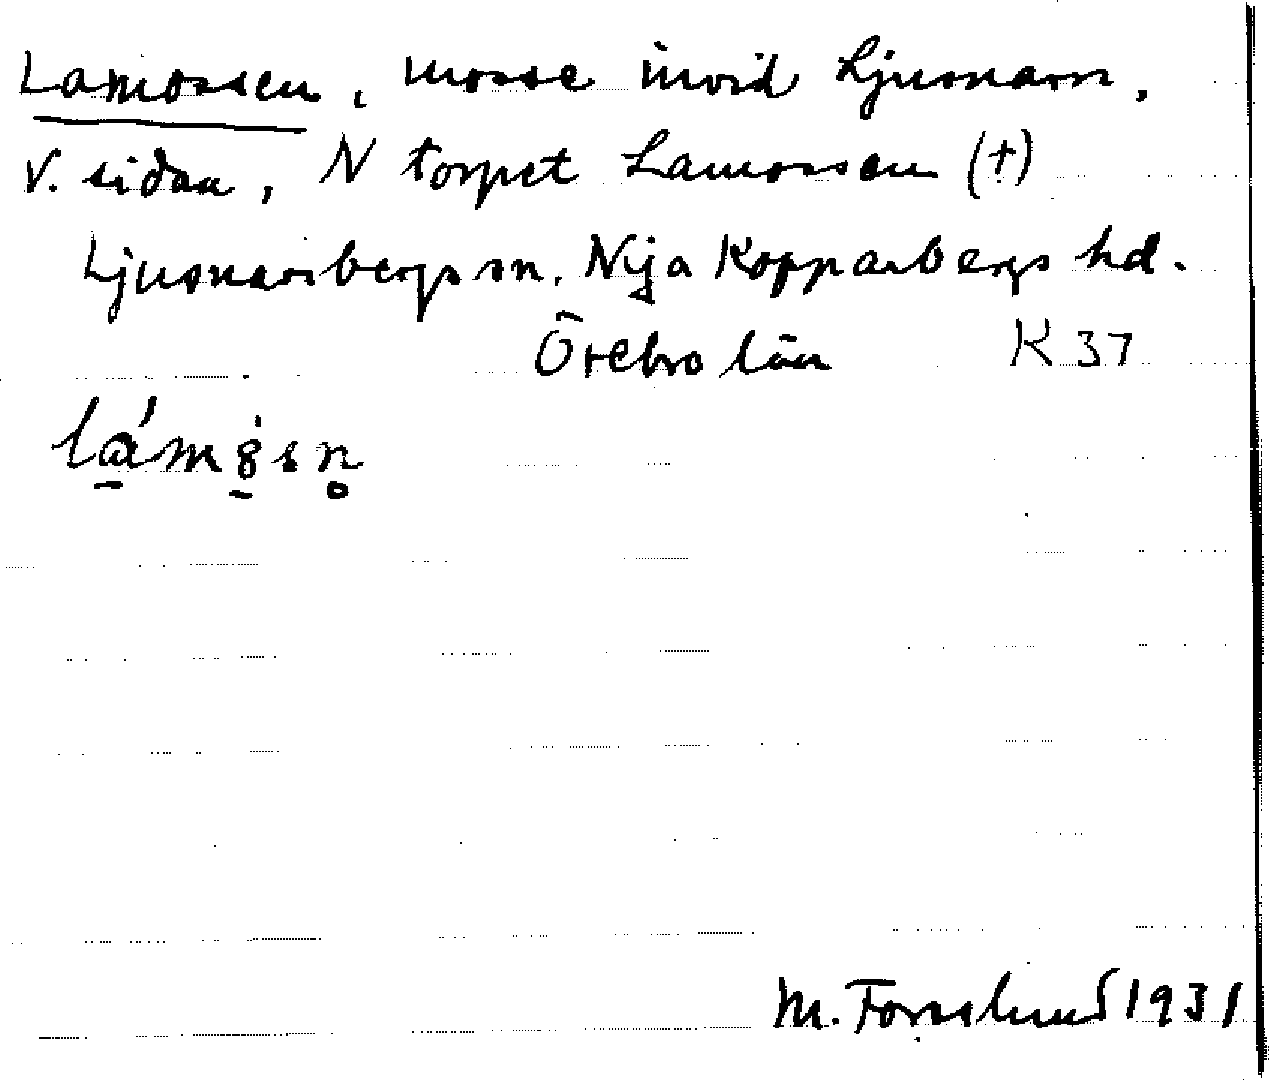 Lamossen, mosse invid Ljusnarn,
V. sidan, N torpet Lamossen (†)
Ljusnarsbergs sn. Nya Kopparbergs hd.
Örebro län K 37
M. Forsslund 1931